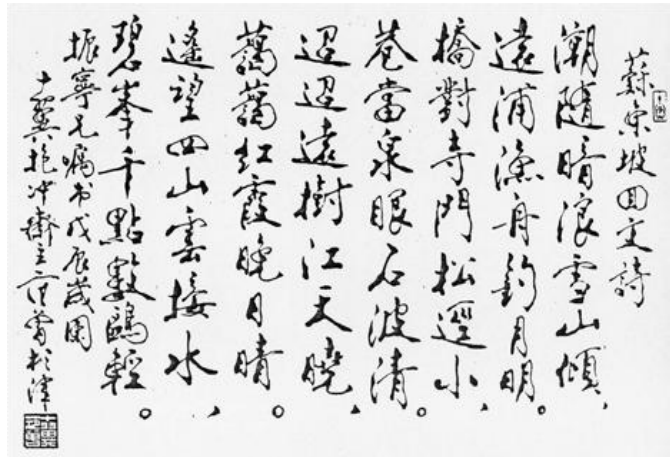 蘇東坡回文詩
潮隨暗浪雪山傾，
遠浦漁舟釣月明。
橋對寺門松逕小，
巷當泉眼石波清。
迢迢遠樹江天曉，
藹藹紅霞晚日晴。
遙望四山雲接水，
碧峯千點數鷗輕。
振寧兄囑书戊辰歲闌
十翼抱冲齋主范曾於津